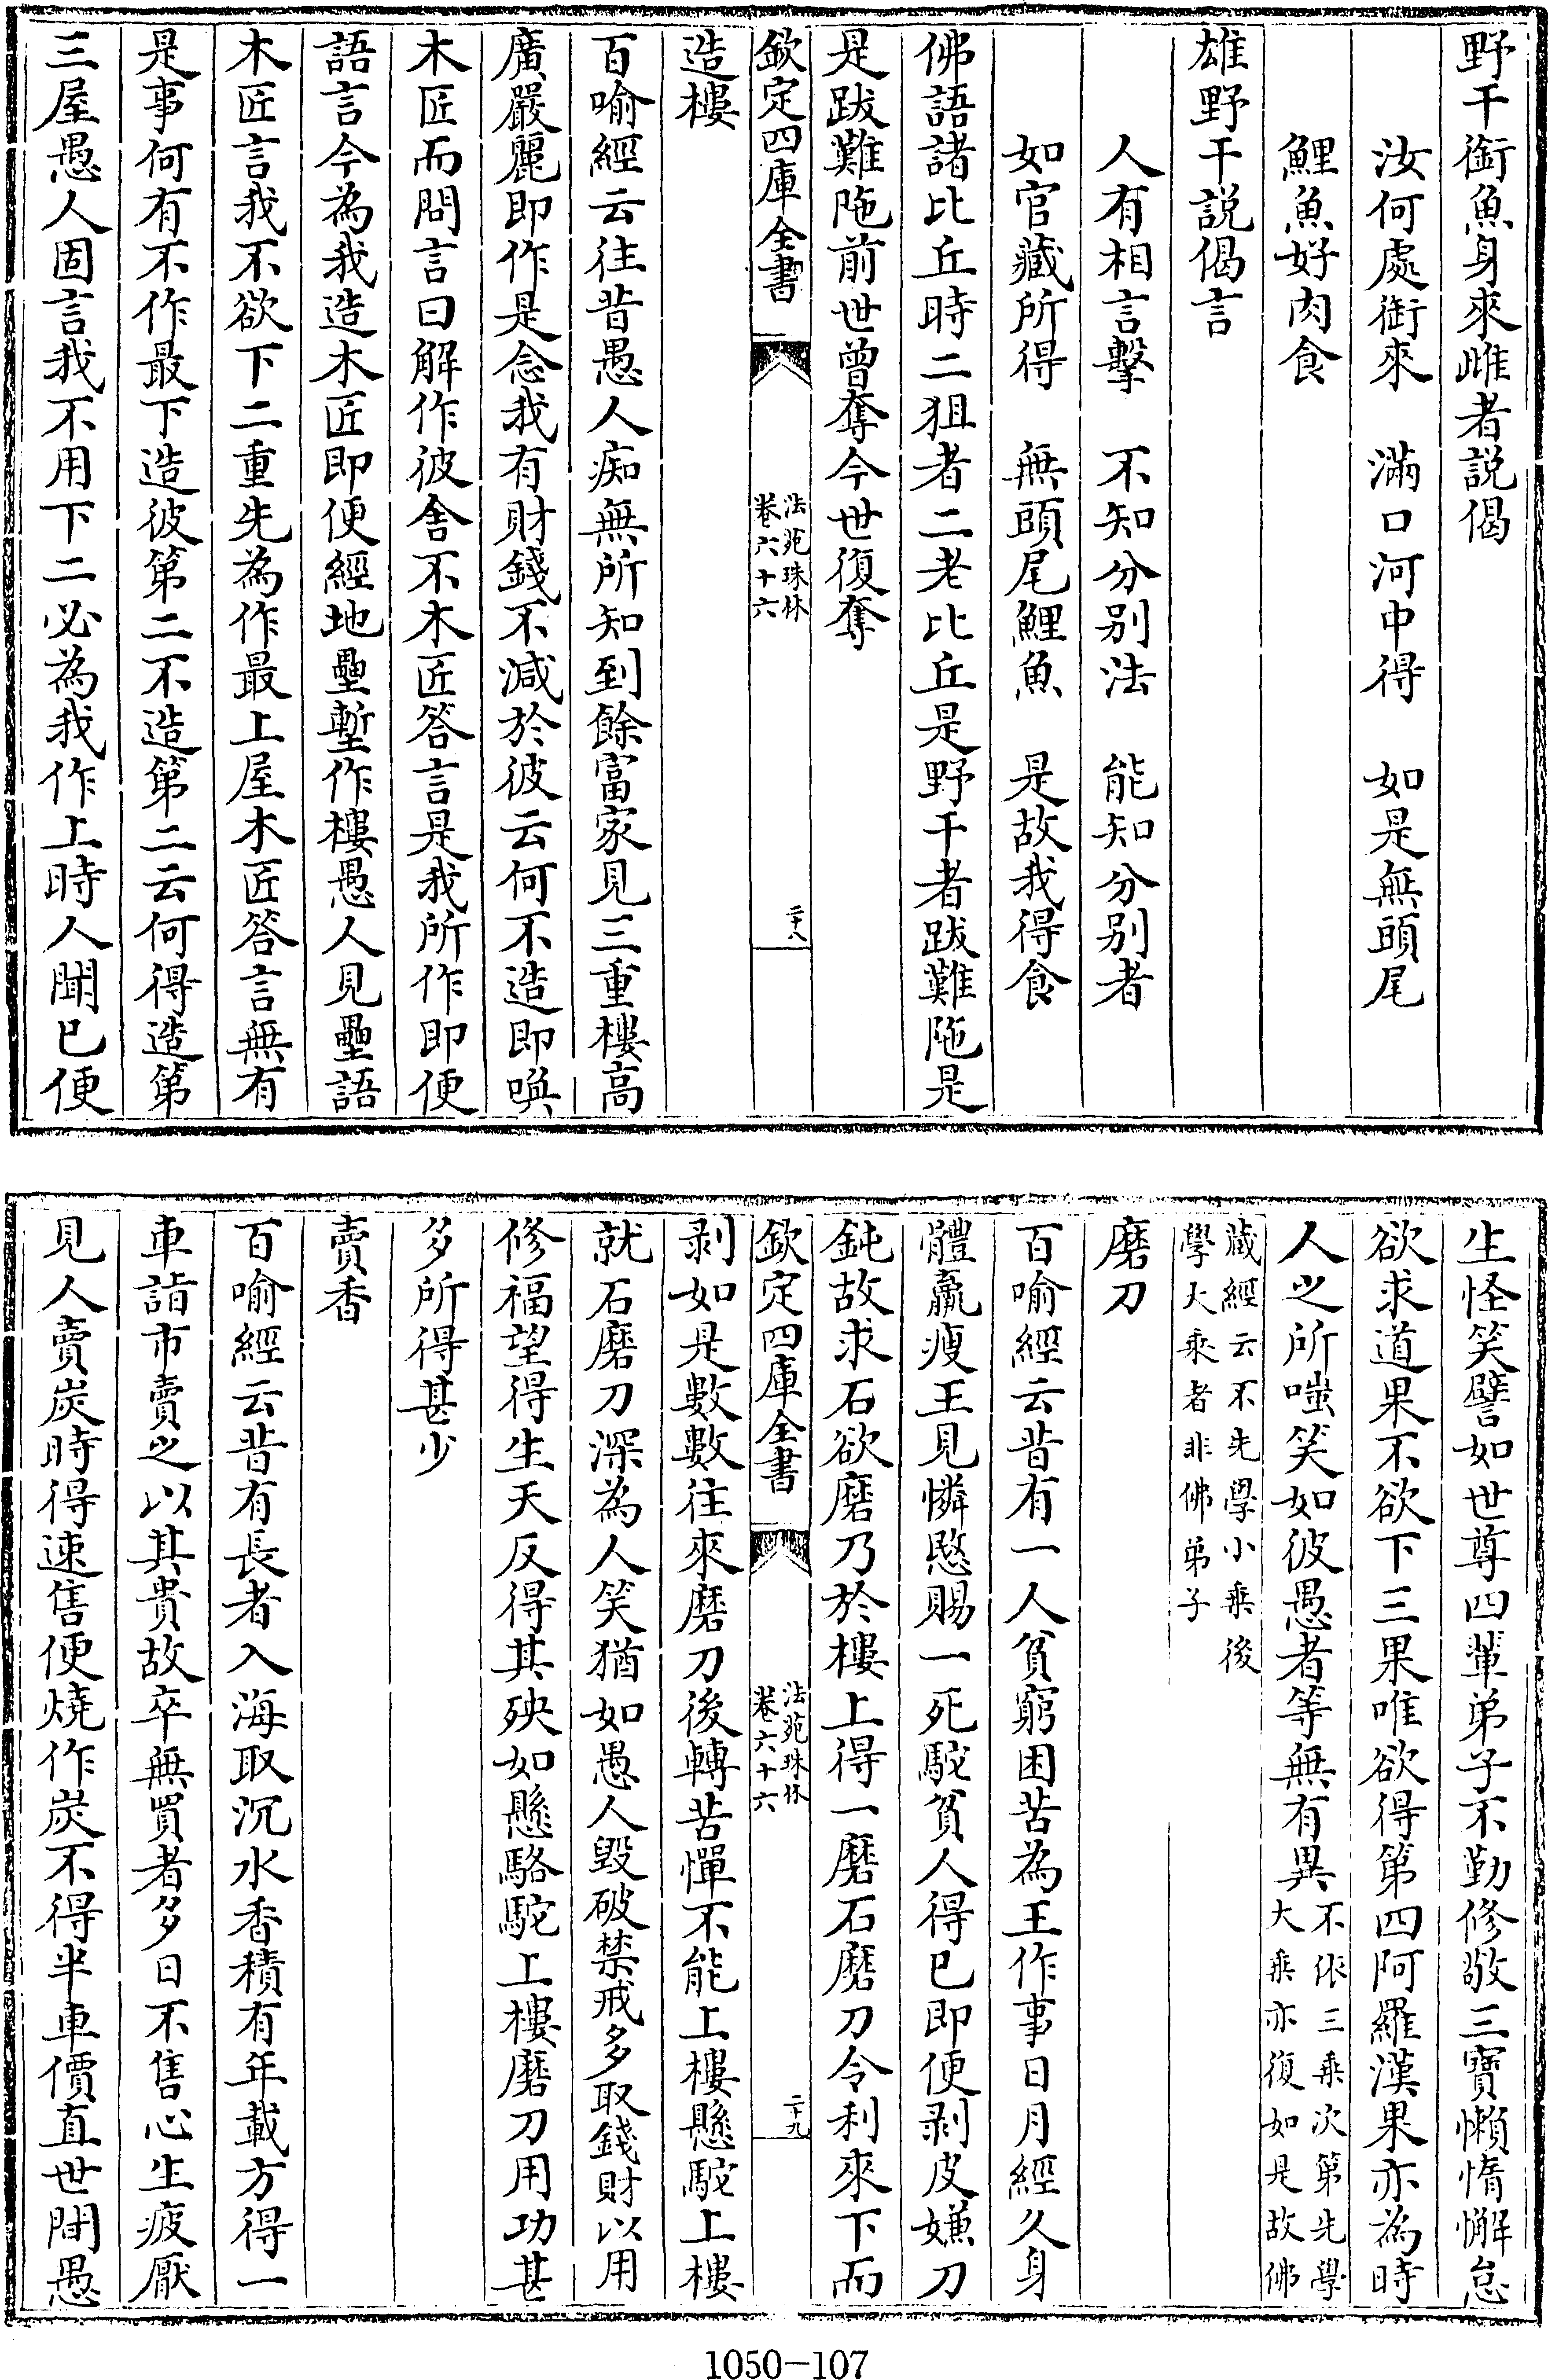 野干銜魚身來雌者説偈
汝何處銜來　滿口河中得　如是無頭尾
鯉魚好肉食
雄野干説偈言
人有相言擊　不知分别法　能知分别者
如官藏所得　無頭尾鯉魚　是故我得食
佛語諸比丘時二狙者二老比丘是野干者跋難陁是
是跋難陁前世曾奪今世復奪
欽定四庫全書
法苑珠林
卷六十六
二十八
造樓
百喻經云往昔愚人痴無所知到餘富家見三重樓高
廣嚴麗即作是念我有財錢不減於彼云何不造即喚
木匠而問言曰解作彼舍不木匠答言是我所作即便
語言今為我造木匠即便經地壘塹作樓愚人見壘語
木匠言我不欲下二重先為作最上屋木匠答言無有
是事何有不作最下造彼第二不造第二云何得造第
三屋愚人固言我不用下二必為我作上時人聞已便
生怪笑譬如世尊四輩弟子不勤修敬三寶懶惰懈怠
欲求道果不欲下三果唯欲得第四阿羅漢果亦為時
人之所嗤笑如彼愚者等無有異
不依三乘次第先學
大乘亦復如是故佛
藏經云不先學小乘後
學大乘者非佛弟子
磨刀
百喻經云昔有一人貧窮困苦為王作事日月經久身
體羸瘦王見憐愍賜一死駝貧人得已即便剥皮嫌刀
鈍故求石欲磨乃於樓上得一磨石磨刀令利來下而
欽定四庫全書
法苑珠林
卷六十六
二十九
剥如是數數往來磨刀後轉苦憚不能上樓懸駝上樓
就石磨刀深為人笑猶如愚人毀破禁戒多取錢財以用
修福望得生天反得其殃如懸駱駝上樓磨刀用功甚
多所得甚少
賣香
百喻經云昔有長者入海取沉水香積有年載方得一
車詣市賣之以其貴故卒無買者多日不售心生疲厭
見人賣炭時得速售便燒作炭不得半車價直世間愚
1050-107